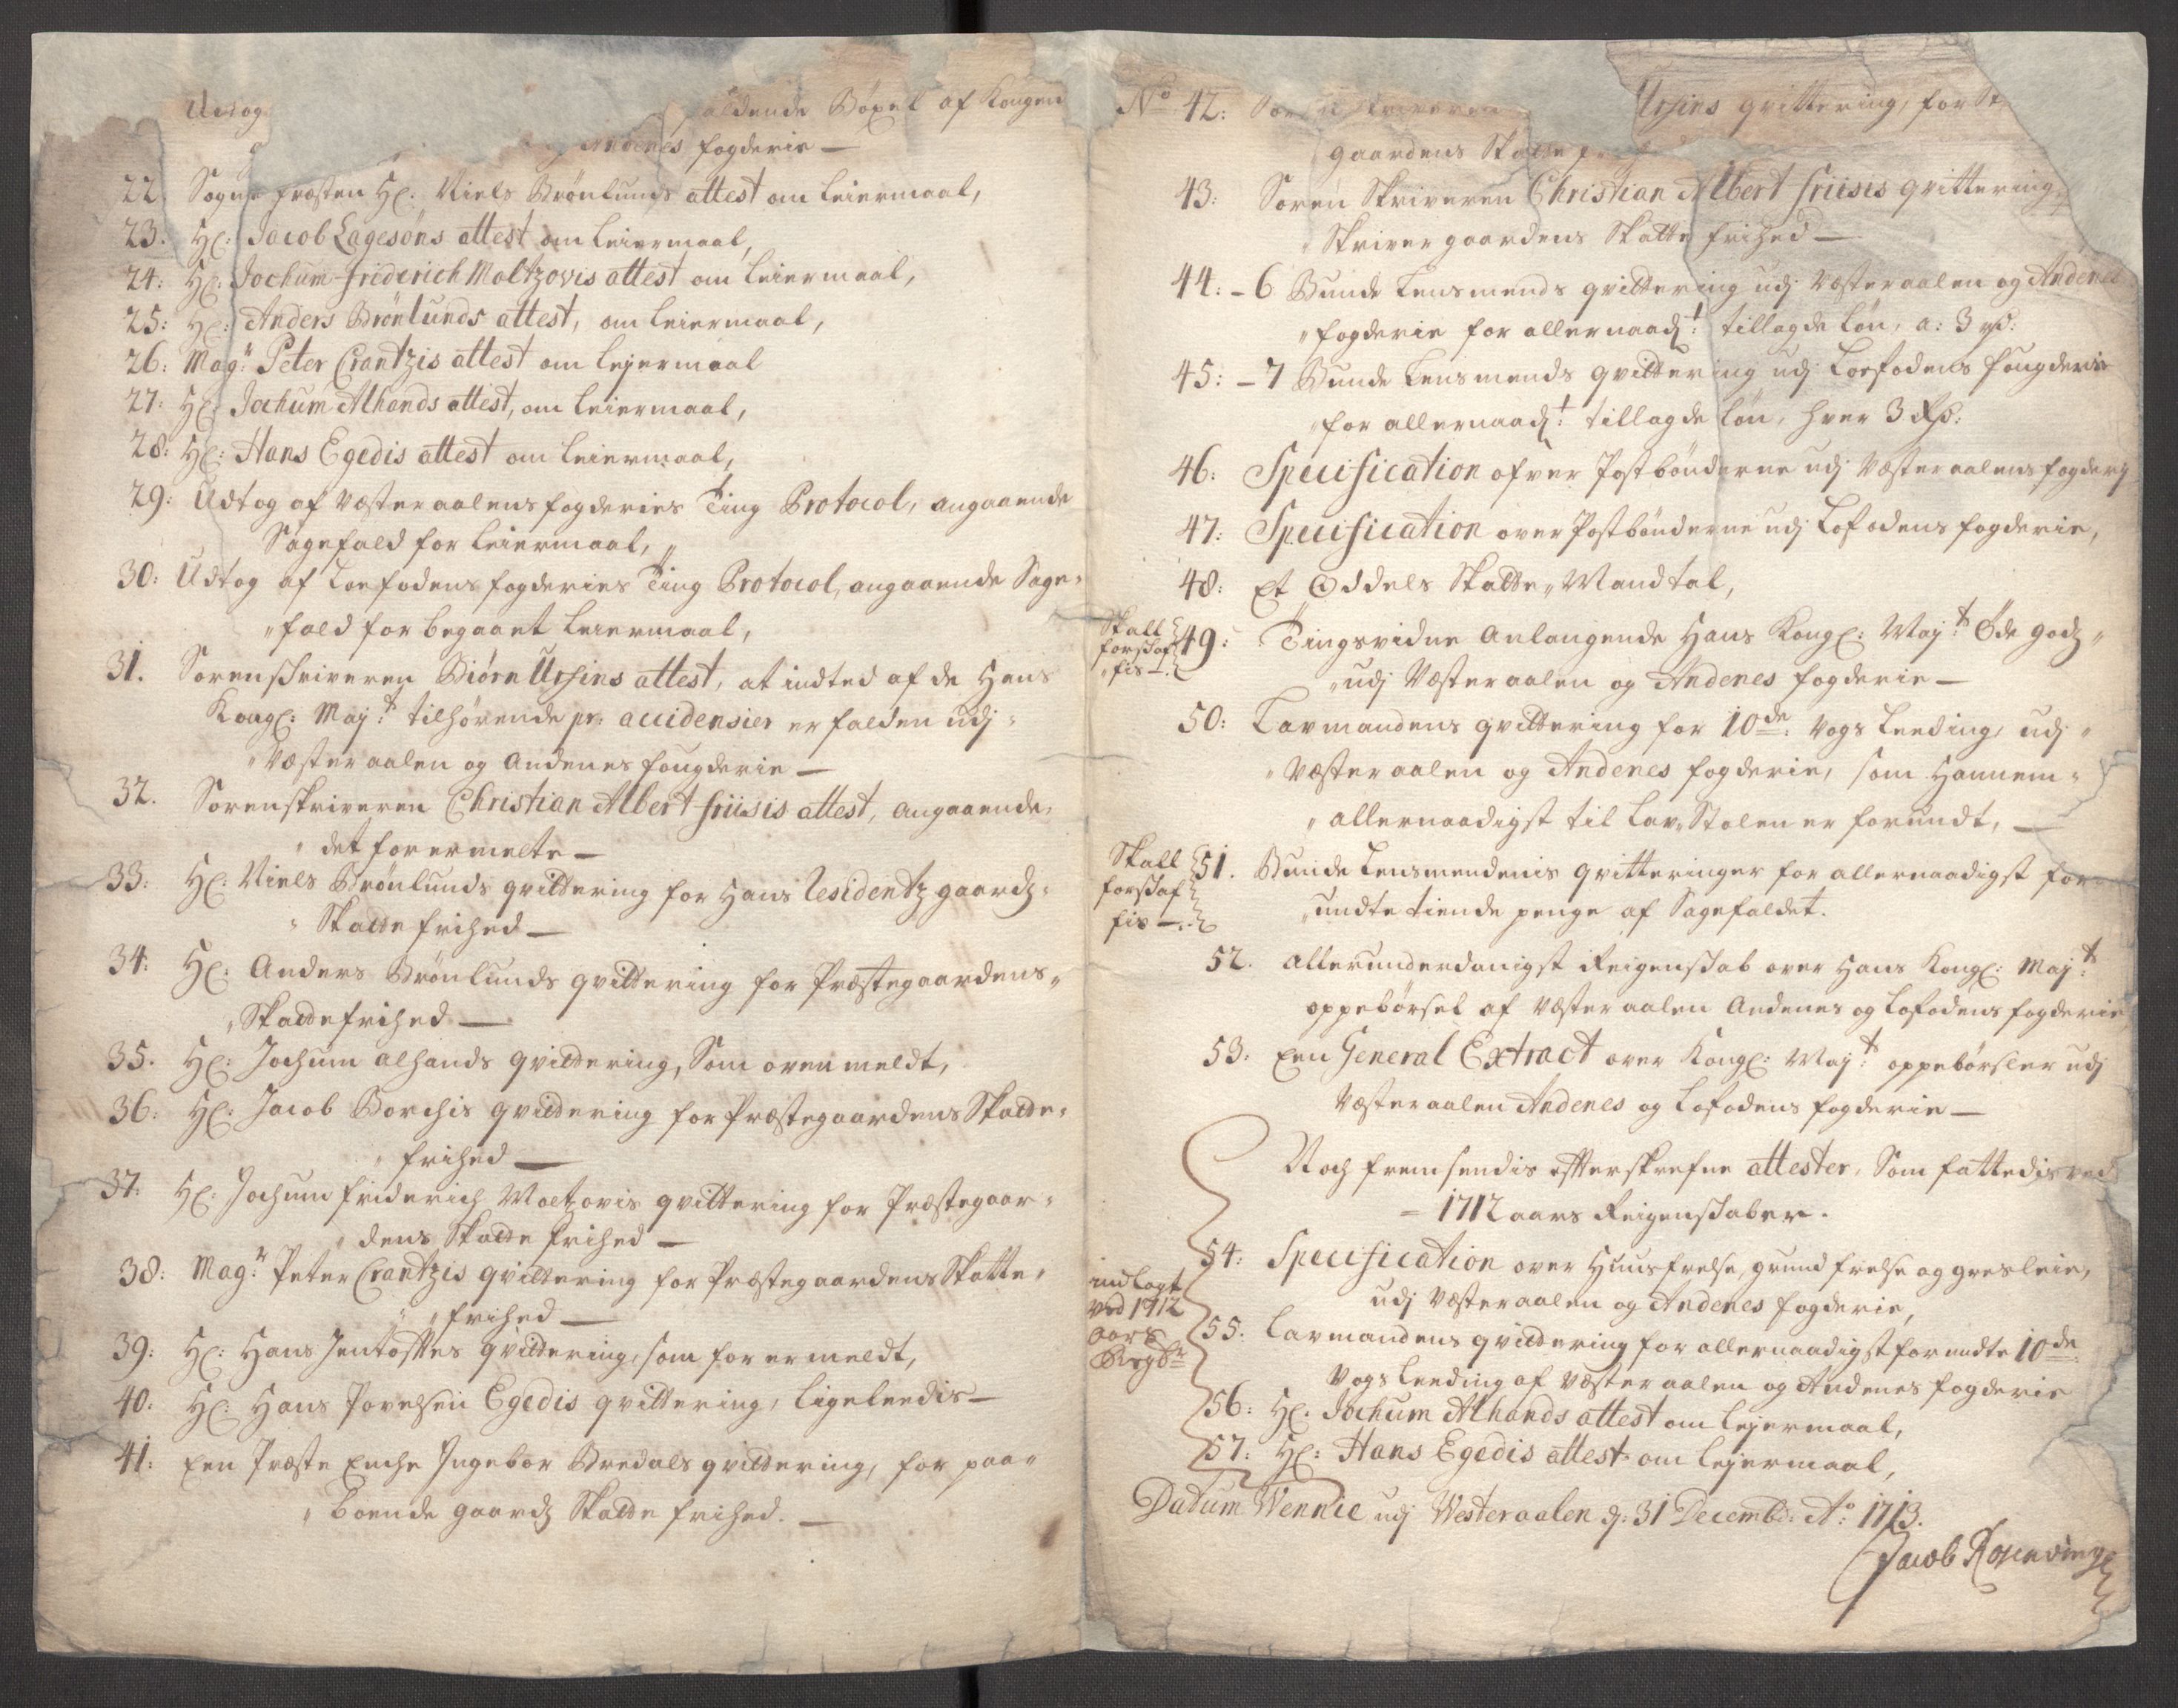 Udtog aldende Böxel af Kongens
Andenes fogderie —
22 Sogne præsten Hr: Niels Brönlunds attest om leiermaal,
23. Hr: Jacob Lagesöns attest om leiermaal,
24: Hr: Jochum Friderich Moltzovis attest om leiermaal,
25: Hr: Anders Brönlunds attest, om leiermaal,
26: Magr: Peter Crantzis attest om lejermaal
27: Hr: Jochum Alhands attest, om leiermaal,
28: Hr: Hans Egedis attest om leiermaal,
29: Udtog af Væsteraalens fogderies Ting Protocol, angaaende
Sagefald for leiermaal,
30: Udtog af Loefodens fogderies Ting Protocol, angaaende Sage„
„fald for begaaet leiermaal,
31. Sorenskriveren Biörn Ursins attest, at indted af de Hans
Kongl: Mayt: tilhörende pr: accidensier er falden udj„
„Væsteraalen og Andenes fougderie —
32. Sorenskriveren Christian Albert Friisis attest, angaaende„
„det forermelte —
33: Hr: Niels Brönlunds qvittering for Hans Residentz gaardz„
„Skatte frihed —
34: Hr: Anders Brönlunds qvittering for Præstegaardens„
„Skattefrihed —
35. Hr: Jochum alhands qvittering, Som oven meldt,
36: Hr: Jacob Borchis qvittering for Præstegaardens Skatte„
„frihed —
37: Hr: Jochum friderich Moltzovis qvittering for Præstegaar„
„dens Skatte frihed —
38: Magr: Peter Crantzis qvittering for Præstegaardens Skatte„
„frihed —
39: Hr: Hans Jentofftes qvittering, som forermeldt,
40: Hr: Hans Povelsen Egedis qvittering, ligeleedis —
41: Een Præste Enche Ingebor Bredals qvittering, for paa„
„boende gaardz Skatte frihed. —
No 42: Sorenskriveren Ursins qvittering, for
gaardens Skatte
43: Soren Skriveren Christian Albert Friisis qvittering,
„Skriver gaardens Skatte frihed —
44: – 6 Bunde Lensmends qvittering udj Væsteraalen og Andenes
„fogderie for allernaadt: tillagde lön, a: 3 rd:
45: – 7 Bunde Lensmends qvittering udj Loefodens fougderie
„for allernaadt: tillagde lön, hver 3 Rd:
46: Specification ofver Postbönderne udj Væsteraalens fogderj
47: Specification over Postbönderne udj Lofodens fogderie,
48: Et Oddels Skatte„Mandtal,
Skall
forskaf
„fis —.
49: Tingsvidne Anlangende Hans Kongl: Mayt: Öde godz„
„udj Væsteraalen og Andenes fogderie —
50: Lavmandens qvittering for 10de: Vogs Leeding, udj„
„Væsteraalen og Andenes fogderie, som Hannem„
„allernaadigst til Lav„Stolen er forundt, —
Skall
forskaf
fis —.
51. Bunde Lensmendenis qvitteringer for allernaadigst for
„undte tiende penge af Sagefaldet.
52. Allerunderdanigst Reigenskab over Hans Kongl: Mayt:
oppebörsel af Væsteraalen Andenes og Lofodens fogderie
53: Een General Extract over Kongl: Mayt: oppebörsler udj
Væsteraalen Andenes og Lofodens fogderie —
Noch fremsendis efterskrefne attester, Som fattedis ved
1712 aars Reigenskaber.
54: Specification over Huusfrelse, grund frelse og gresleie,
udj Væsteraalen og Andenes fogderie,
indlagt
ved 1712
aars
Regskr
55: Lavmandens qvittering for allernaadigst forundte 10de:
Vogs Leeding af Væsteraalen og Andenes fogderie
56: Hr: Jochum Alhands attest om lejermaal,
57: Hr: Hans Egedis attest om lejermaal,
Datum Vennie udj Westeraalen d: 31 Decembr: Ao: 1713.
Jacob Rosenvinge